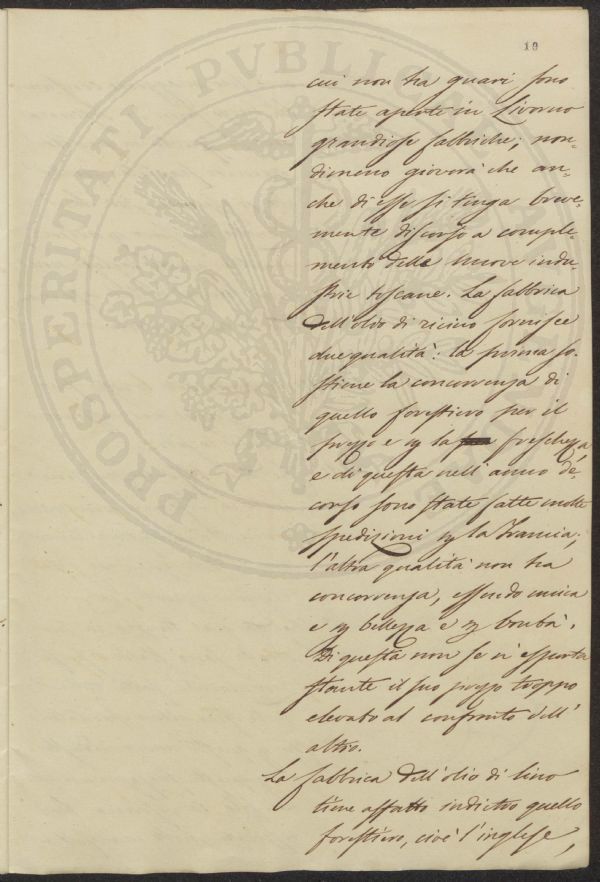 10
cui non ha guari sono
state aperte in Livorno
grandiose fabbriche; non-
dimeno gioverà che an-
che di esse si tenga breve-
mente discorso a comple-
mento delle nuove indu-
strie toscane. La fabbrica
dell'olio di ricino fornisce
due qualità: la prima so-
stiene la concorrenza di
quello forestiero per il
prezzo e p la freschezza,
e di questa nell'anno de-
corso sono state fatte molte
spedizioni p la Francia;
l'altra qualità non ha
concorrenza, essendo unica
e p bellezza e p bontà.
Di questa non se n'esporta
stante il suo prezzo troppo
elevato al confronto dell'
altro.
La fabbrica dell'olio di lino
tiene affatto indietro quello
forestiero, cioè l'inglese,
PROSPERITATI PVBLIC